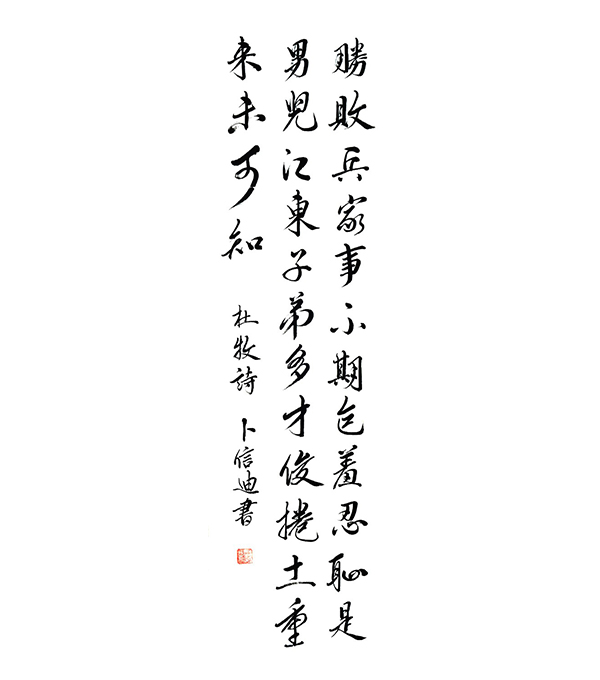 勝敗兵家事不期包羞忍恥是
男兒江東子弟多才俊捲土重
来未可知 杜牧詩 卜信迪書